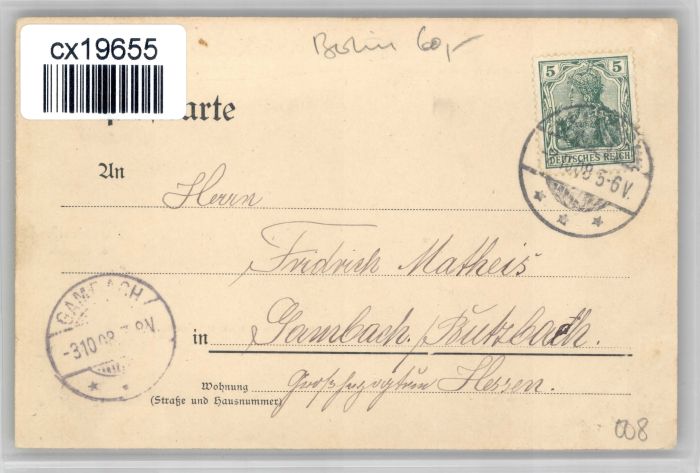 cx19655
Berlin 60,-
5 5
DEUTSCHES REICH
08 5-6V.
arte
An
Herrn
Fridrich Matheis
in Gambach./Butzbach.
Großherzogtum Hessen.
Wohnung
(Straße und Hausnummer)
GAMBACH
-3.10.08. 7-8V.
008